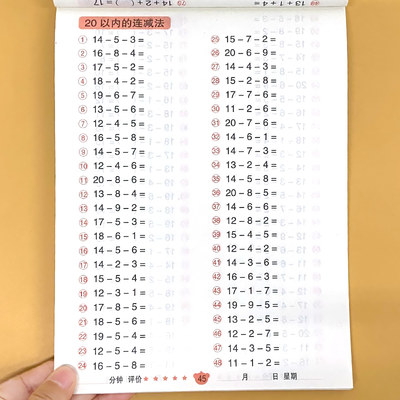 ⑦⑧ 14+2+( )=17
13+1+4=
20以内的连减法
① 14-5-3=
② 17-5-4=
③ 16-5-8=
④ 12-8-4=
⑤ 19-6-7=
⑥ 13-5-6=
⑦ 12-4-5=
⑧ 16-5-8=
⑨ 14-5-7=
⑩ 12-4-6=
⑪ 20-8-6=
⑫ 13-8-4=
⑬ 14-9-2=
⑭ 17-5-3=
⑮ 18-6-1=
⑯ 14-5-6=
⑰ 14-2-3=
⑱ 15-5-4=
⑲ 12-3-1=
⑳ 15-8-5=
㉑ 17-8-5=
㉒ 18-5-6=
㉓ 12-5-4=
㉔ 16-5-8=
㉕ 15-7-2=
㉖ 20-6-9=
㉗ 14-3-6=
㉘ 15-8-4=
㉙ 17-8-2=
㉚ 11-2-6=
㉛ 20-7-6=
㉜ 14-6-1=
㉝ 14-7-3=
㉞ 13-2-4=
㉟ 14-5-8=
㊱ 20-8-5=
㊲ 14-6-6=
㊳ 12-8-2=
㊴ 15-4-5=
㊵ 12-4-2=
㊶ 14-3-6=
㊷ 16-6-3=
㊸ 17-1-7=
㊹ 19-9-5=
㊺ 13-2-5=
㊻ 12-2-7=
㊼ 14-3-5=
㊽ 11-1-2=
分钟 评价 ★★★★★ 45 月 日 星期